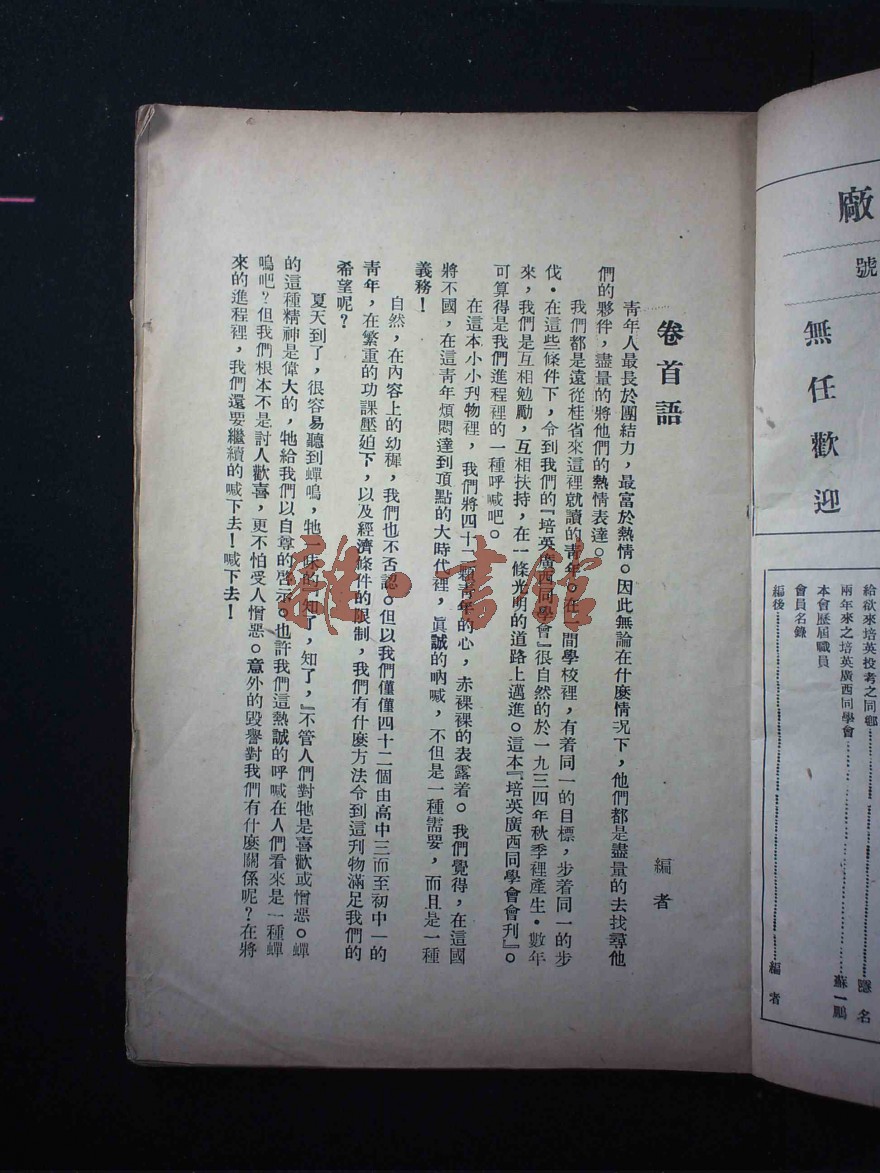 廠
號
無任歡迎
給欲來培英投考之同鄉……隱名
兩年來之培英廣西同學會……蘇一鵬
本會歷屆職員
會員名錄
編後……編者
卷首語
編者
青年人最長於團結力，最富於熱情。因此無論在什麼情况下，他們都是盡量的去找尋他
們的夥伴，盡量的將他們的熱情表達。
我們都是遠從桂省來這裡就讀的青年。在間學校裡，有着同一的目標，步着同一的步
伐・在這些條件下，令到我們的『培英廣西同學會』很自然的於一九三四年秋季裡產生・數年
來，我們是互相勉勵，互相扶持，在一條光明的道路上邁進。這本『培英廣西同學會會刊』。
可算得是我們進程裡的一種呼喊吧。
在這本小小刋物裡，我們將四十二顆青年的心，赤裸裸的表露着。我們覺得，在這國
將不國，在這青年煩悶達到頂點的大時代裡，眞誠的吶喊，不但是一種需要，而且是一種
義務！
自然，在內容上的幼穉，我們也不否認。但以我們僅僅四十二個由高中三而至初中一的
青年，在繁重的功課壓廹下，以及經濟條件的限制，我們有什麼方法令到這刋物滿足我們的
希望呢？
夏天到了，很容易聽到蟬鳴，牠一味的『知了，知了，』不管人們對牠是喜歡或憎惡。蟬
的這種精神是偉大的，牠給我們以自尊的啓示。也許我們這熱誠的呼喊在人們看來是一種蟬
鳴吧？但我們根本不是討人歡喜，更不怕受人憎惡。意外的毀譽對我們有什麼關係呢？在將
來的進程裡，我們還要繼續的喊下去！喊下去！
雜・書館